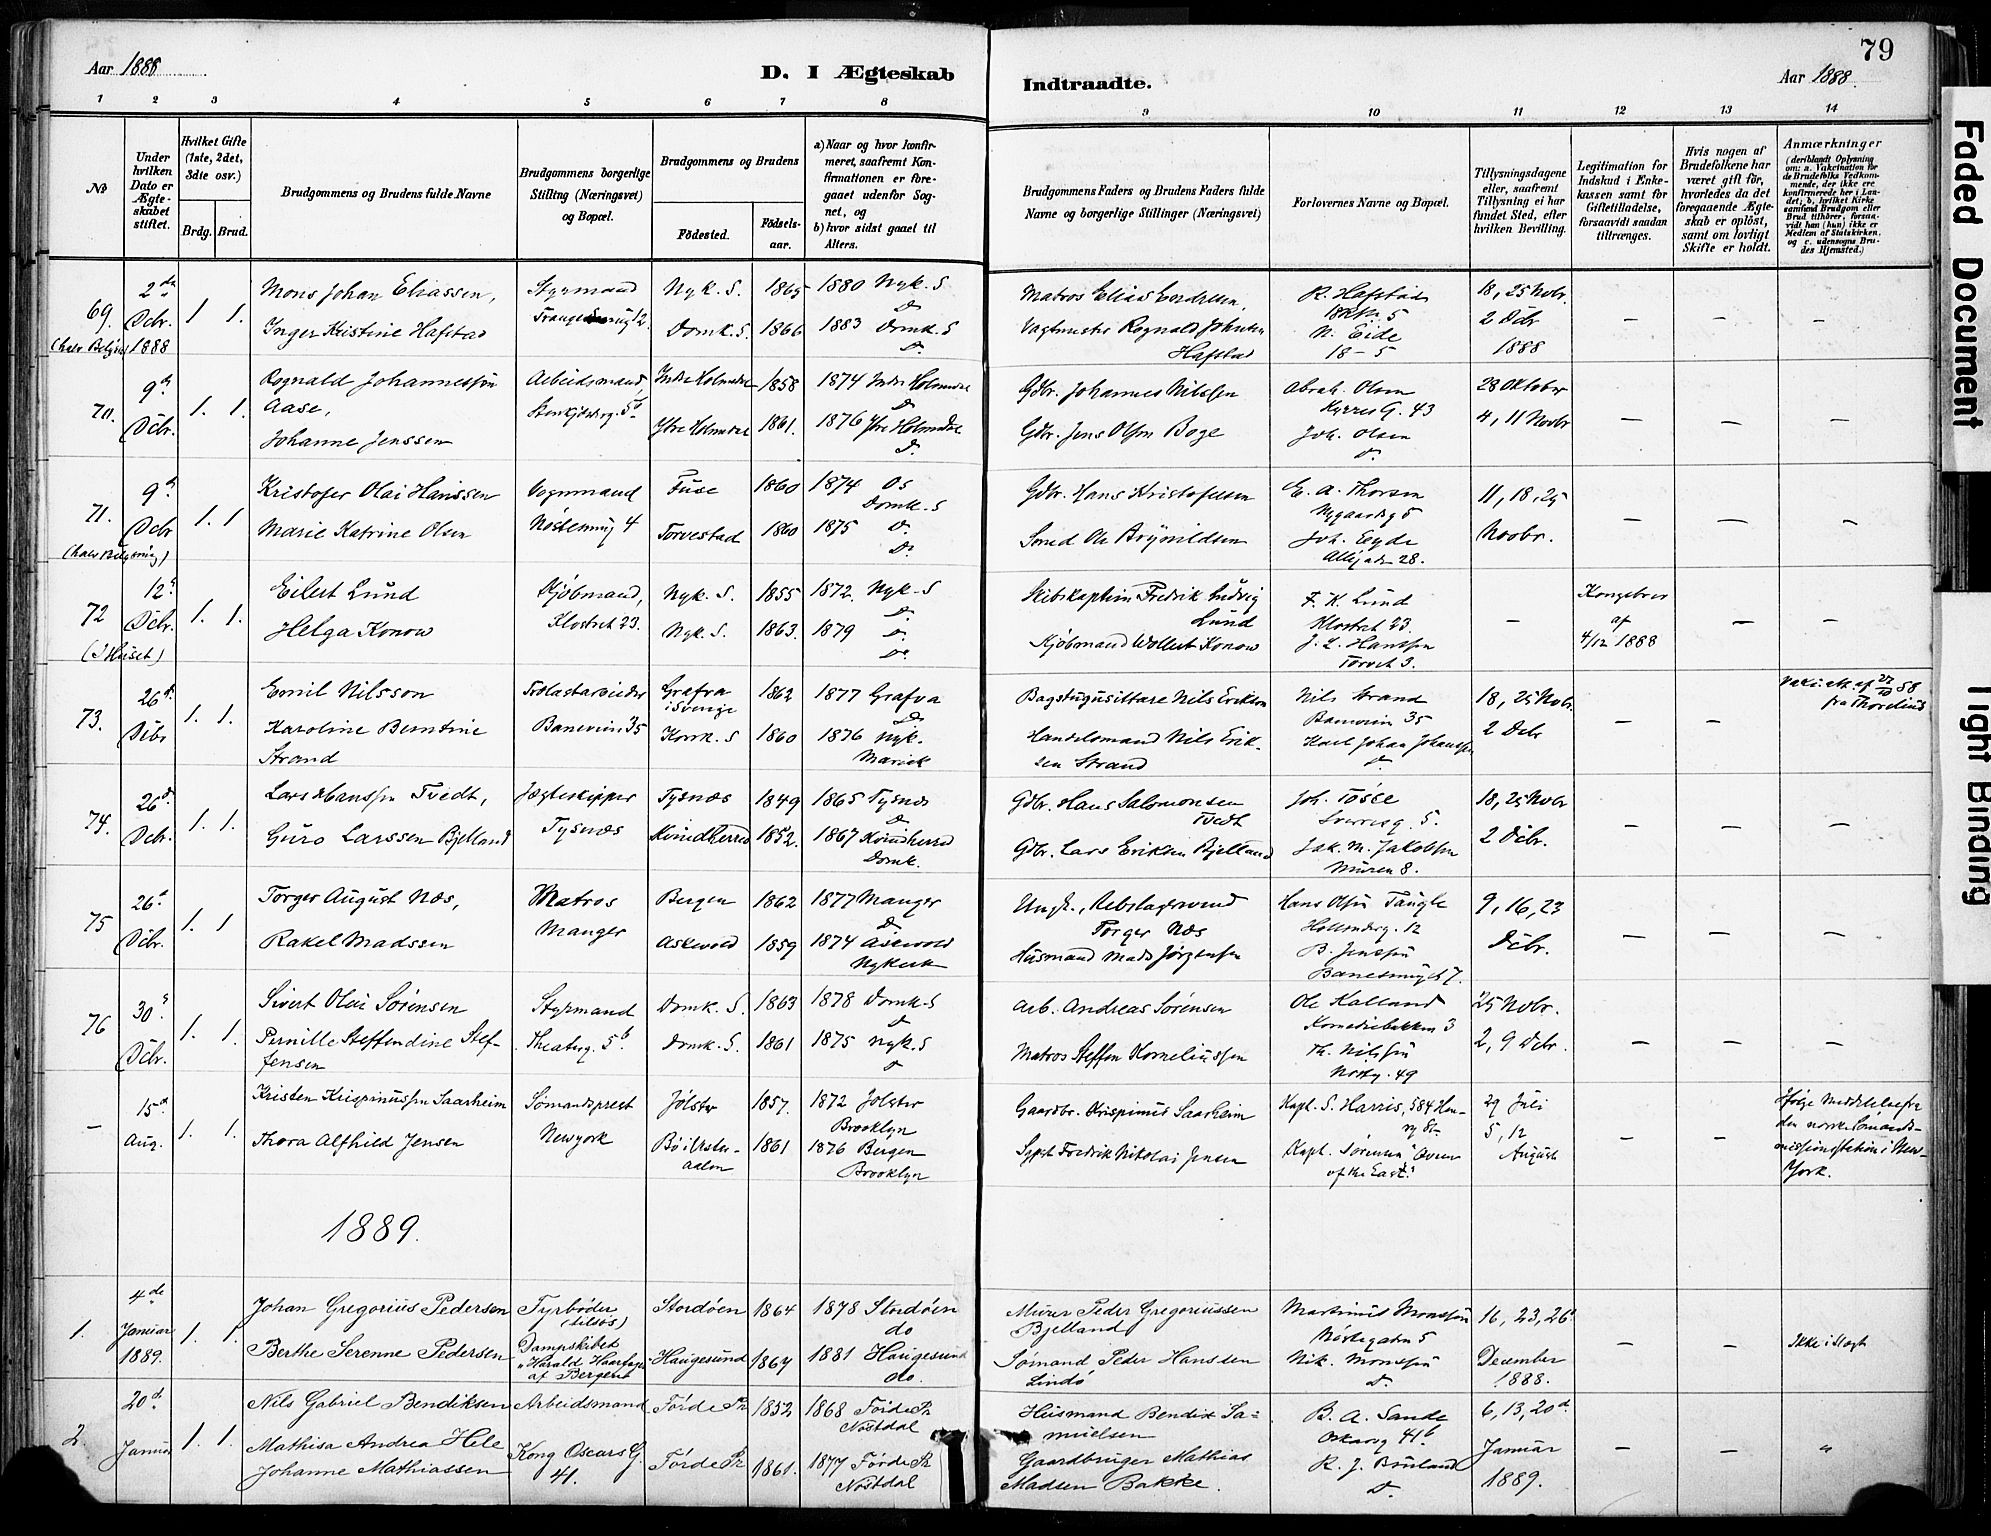 79
Aar 1888
D. I Ægteskab
Indtraadte.
Aar 1888.
1 2 3 4 5 6 7 8
9 10 11 12 13 14
No
Under hvilken Dato er Ægteskabet stiftet.
Hvilket Gifte (1ste, 2det, 3die osv.)
Brdg. Brud.
Brudgommens og Brudens fulde Navne
Brudgommens borgerlige Stilling (Næringsvei) og Bopæl.
Brudgommens og Brudens
Fødested.
Fødselsaar.
a) Naar og hvor konfirmeret, saafremt Konfirmationen er foregaaet udenfor Sognet, og
b) hvor sidst gaaet til Alters.
Brudgommens Faders og Brudens Faders fulde Navne og borgerlige Stillinger (Næringsvei)
Forlovernes Navne og Bopæl.
Tillysningsdagene eller, saafremt Tillysning ei har fundet Sted, efter hvilken Bevilling.
Legitimation for Indskud i Enkekassen samt for Giftetilladelse, forsaavidt saadan tiltrænges.
Hvis nogen af Brudefolkene har været gift før, hvorledes da det foregaaende Ægteskab er opløst, samt om lovligt Skifte er holdt.
Anmærkninger
(deriblandt Oplysning om: a. Vakcination for de Brudefolks Vedkommende, der ikke ere konfirmerede her i Landet; b. hvilket Kirkesamfund Brudgom eller Brud tilhører, forsaavidt han (hun) ikke er Medlem af Statskirken, og c. udensogns Brudes Hjemsted.)
69. 2den Dcbr. 1888 1 1.
Mons Johan Eliassen, Styrmand Nyk. S. 1865 1880 Nyk. S. do
Inger Kristine Hafstad Domk. S. 1866 1883 Domk. S do.
Matros Elias
Vagtmester Rognald Johnsen Hafstad
R. Hafstad
N. Eide
18 - 5
18, 25 Novbr.
2 Dcbr
1888
— — —
70. 9d. Dcbr. 1. 1.
Rognald Johannessøn Aase, Arbeidsmand, Indre Holmedal 1858 1874 Indre Holmedal do
Johanne Jenssen Ytre Holmedal 1861. 1876 Ytre Holmedal do.
Gdbr. Johannes Nilssen
Gdbr. Jens Olsen Boge
Abrah. Olsen
G. 43
Joh. Olsen
do.
28 Oktober
4, 11 Novbr
— — —
71. 9d. Dcbr 1. 1
Kristofer Olai Hanssen Vognmand Fuse 1860 1874 Os Domk. S
Marie Katrine Olsen 4 Torvestad 1860 1875 do. do.
Gdbr. Hans Kristofersen
Smed Ole
E. A. Thorsen
Nygaardsg 5
Joh. Eyde
28.
11, 18, 25
Novbr.
— — —
72 12d Dcbr. (I Huset) 1. 1.
Eilert Lund Kjøbmand, Nyk. S. 1855 1872. Nyk. S do.
Helga Konow Klostret 23. Nyk. S. 1863. 1879 do. do.
Skibskaptein Fredrik Ludvig Lund
Kjøbmand Wollert Konow
F. K. Lund
Klostret 23.
J. L. Hanssen
Torvet 3.
—
Kongebrev
af
4/12 1888
— —
73. 26d. Dcbr 1. 1.
Emil Nilsson Grafva i Sverige 1862 1877 Grafva do
Karoline Berntine Strand Baneveien 35 Korsk. S 1860 1876 Nyk. Mariek
Bagstugusittare Nils Erikson
Handelsmand Nils Eriksen Strand
Nils Strand
Baneveien 35
Karl Johan Johanssen
do.
18, 25 Novbr.
2 Dcbr
— —
58
fra Thorelius
74. 26d. Dcbr. 1. 1.
Lars Hanssen Tvedt, Jægteskipper Tysnæs 1849 1865 Tysnæs do
Guro Larssen Bjelland Tysnæs Kvindherred 1852. 1867 Kvindherred Domk.
Gdbr. Hans Salomonsen Tvedt
Gdbr. Lars Eriksen Bjelland
Joh. Tøsse
Sverresg. 5.
Jak. M. Jakobsen
Muren 8.
18, 25 Novbr
2 Dcbr.
— — —
75 26d. Dcbr. 1. 1
Torger August Næs, Matros Bergen 1862 1877 Manger do
Rakel Madssen Manger Askevold 1859 1874 Askevold Nykirk
Ungk., Rebslagersvend Torger Næs
Husmand Mads Jørgensen
Hans Olsen
Hollenderg. 12
B. Jenssen
7.
9, 16, 23
Dcbr.
— — —
76 30d. Dcbr. 1. 1.
Sivert Olai Sørensen Styrmand Domk. S. 1863 1878 Domk. S do
Pernille Steffendine Steffensen Theaterg. 5b. Domk. S. 1861 1875 Nyk. S do
Arb. Andreas Sørensen
Matros Steffen Korneliussen
Ole Kalland
Komediebakken 3
Th. Nilssen
Nøsteg. 49
25 Novbr.
2, 9 Dcbr.
— — —
— 15d. Aug. 1. 1.
Kristen Krispinussen Saarheim Sømandsprest Jølster 1857. 1872 Jølster Brooklyn
Thora Alfhild Jensen Newyork Bø i Vesteraalen 1861 1876 Bergen Brooklyn
Gaardbr. Krispinus Saarheim
Fredrik Nikolai Jensen
Kapt. S. Harris, 584 Henry St.
Kapt. Sørensen "Queen of the East."
29 Juli
5, 12
August
— —
Ifølge Meddelelse fra
den norske Sømands-
missionsstation i New-
York.
1889.
1. 4de Januar 1889. 1. 1.
Johan Gregorius Pedersen Fyrbøder Stordøen 1864 1878 Stordøen do
Berthe Serenne Pedersen Dampskibet "Harald Haarfager" af Bergen Haugesund 1864 1881 Haugesund do.
Murer Peder Gregoriussen Bjelland
Sømand Peder Hanssen Lindø
Martinus Monssen
Nøstegaten 5
Nik. Monssen
do.
16, 23, 26d.
December
1888.
— —
Ikke i Slægt
2 20d. Januar 1. 1.
Nils Gabriel Bendiksen Arbeidsmand Førde Pr 1852 1868 Førde Pr Nøstdal
Mathisa Andrea Hele Johanne Mathiassen Kong Oscars G. 41. Førde Pr 1861. 1877 Førde Pr Nøstdal
Husmand Bendix Samuelsen
Gaardbruger Mathias Madsen Bakke.
B. A. Sande
Oskarsg 41b
K. J.
do.
6, 13, 20d.
Januar
1889.
— — "
Faded Document
Tight Binding